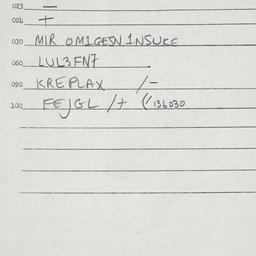 023 —
024 +
030 MIR OM1GESN 1NSUKE
060 LUL3FN7
090 KREPLAX /-
100 FEJGL /+ (/136030